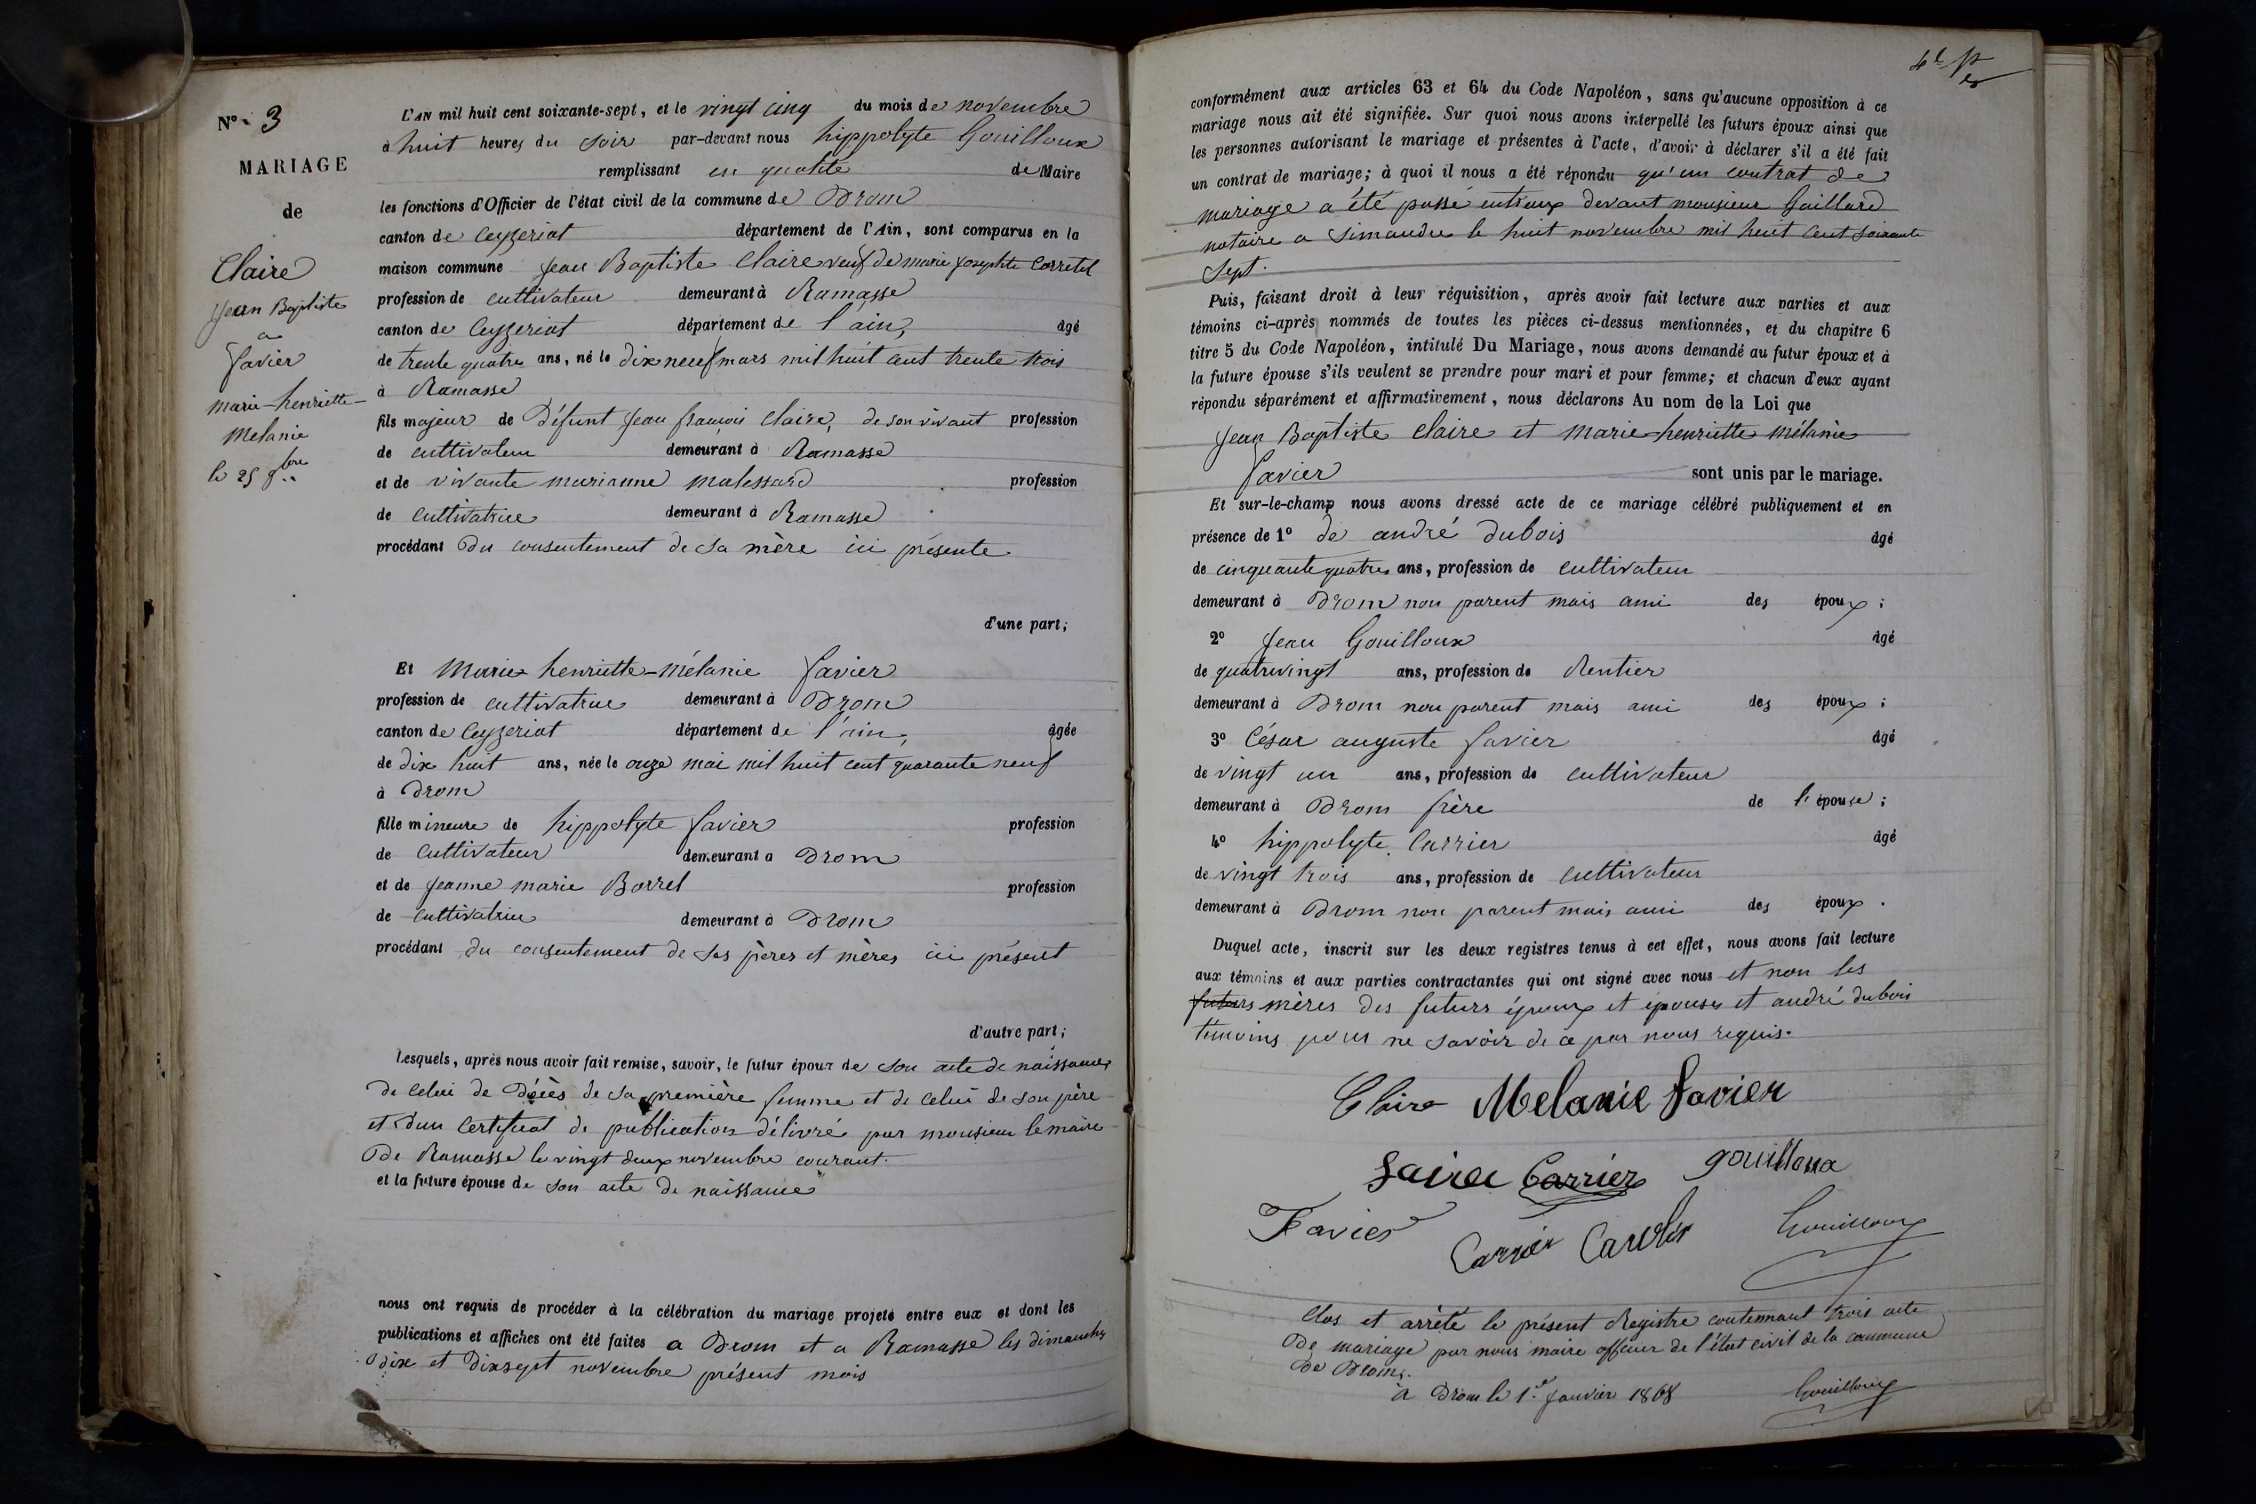 N° 3
MARIAGE
de
Claire
Jean Baptiste
a
favier
marie-henriette-
Melanie
le 25 9bre
L'AN mil huit cent soixante-sept, et le vingt cinq du mois de novembre
à huit heures du soir par-devant nous hippolyte Gouilloux
remplissant en qualité de Maire
les fonctions d'Officier de l'état civil de la commune de Drom
canton de Ceyzeriat département de l'Ain, sont comparus en la
maison commune Jean Baptiste Claire veuf de marie Josephte Corretel
profession de cultivateur demeurant à Ramasse
canton de Ceyzeriat département de l'ain, âgé
de trente quatre ans, né le dix neuf mars mil huit cent trente trois
à Ramasse
fils majeur de Défunt Jean françois Claire, de son vivant profession
de cultivateur demeurant à Ramasse
et de vivante marianne malessard profession
de cultivatrice demeurant à Ramasse
procédant du consentement de sa mère ici présente
d'une part;
Et Marie henriette-mélanie favier
profession de cultivatrice demeurant à Drom
canton de Ceyzeriat département de l'ain, âgée
de dix huit ans, née le onze mai mil huit cent quarante neuf
à Drom
fille mineure de hippolyte favier profession
de cultivateur demeurant à Drom
et de jeanne marie Borrel profession
de cultivatrice demeurant à Drom
procédant du consentement de ses pères et mères ici présent
d'autre part;
Lesquels, après nous avoir fait remise, savoir, le futur époux de son acte de naissance,
de celui de décès de sa première femme et de celui de son père
et d'un certificat de publication délivré par monsieur le maire
De Ramasse le vingt deux novembre courant.
et la future épouse de son acte de naissance
nous ont requis de procéder à la célébration du mariage projeté entre eux et dont les
publications et affiches ont été faites a Drom et a Ramasse les dimanches
dix et dixsept novembre présent mois
conformément aux articles 63 et 64 du Code Napoléon, sans qu'aucune opposition à ce
mariage nous ait été signifiée. Sur quoi nous avons interpellé les futurs époux ainsi que
les personnes autorisant le mariage et présentes à l'acte, d'avoir à déclarer s'il a été fait
un contrat de mariage; à quoi il nous a été répondu qu'un contrat de
mariage a été passé entr'eux devant monsieur Gaillard
notaire a Simandre le huit novembre mil huit cent soixante
sept.
Puis, faisant droit à leur réquisition, après avoir fait lecture aux parties et aux
témoins ci-après nommés de toutes les pièces ci-dessus mentionnées, et du chapitre 6
titre 5 du Code Napoléon, intitulé Du Mariage, nous avons demandé au futur époux et à
la future épouse s'ils veulent se prendre pour mari et pour femme; et chacun d'eux ayant
répondu séparément et affirmativement, nous déclarons Au nom de la Loi que
Jean Baptiste Claire et marie-henriette mélanie
favier sont unis par le mariage.
Et sur-le-champ nous avons dressé acte de ce mariage célébré publiquement et en
présence de 1° de andré dubois âgé
de cinquante quatre ans, profession de cultivateur
demeurant à Drom non parent mais ami des époux;
2° Jean Gouilloux âgé
de quatrevingt ans, profession de Rentier
demeurant à Drom non parent mais ami des époux;
3° César auguste favier âgé
de vingt un ans, profession de cultivateur
demeurant à Drom frère de l'épouse;
4° hippolyte Carrier âgé
de vingt trois ans, profession de cultivateur
demeurant à Drom non parent mais ami des époux.
Duquel acte, inscrit sur les deux registres tenus à cet effet, nous avons fait lecture
aux témoins et aux parties contractantes qui ont signé avec nous et non les
futurs mères des futurs époux et épouses et andré dubois
témoins pour ne savoir de ce par nous requis.
Claire Melanie favier
Carrier gouilloux
Favier Carrier Gouilloux
Clos et arrêté le présent Registre contennant trois acte
De mariage par nous maire officier de l'état civil de la commune
De Drom.
à Drom le 1er Janvier 1868 Gouilloux